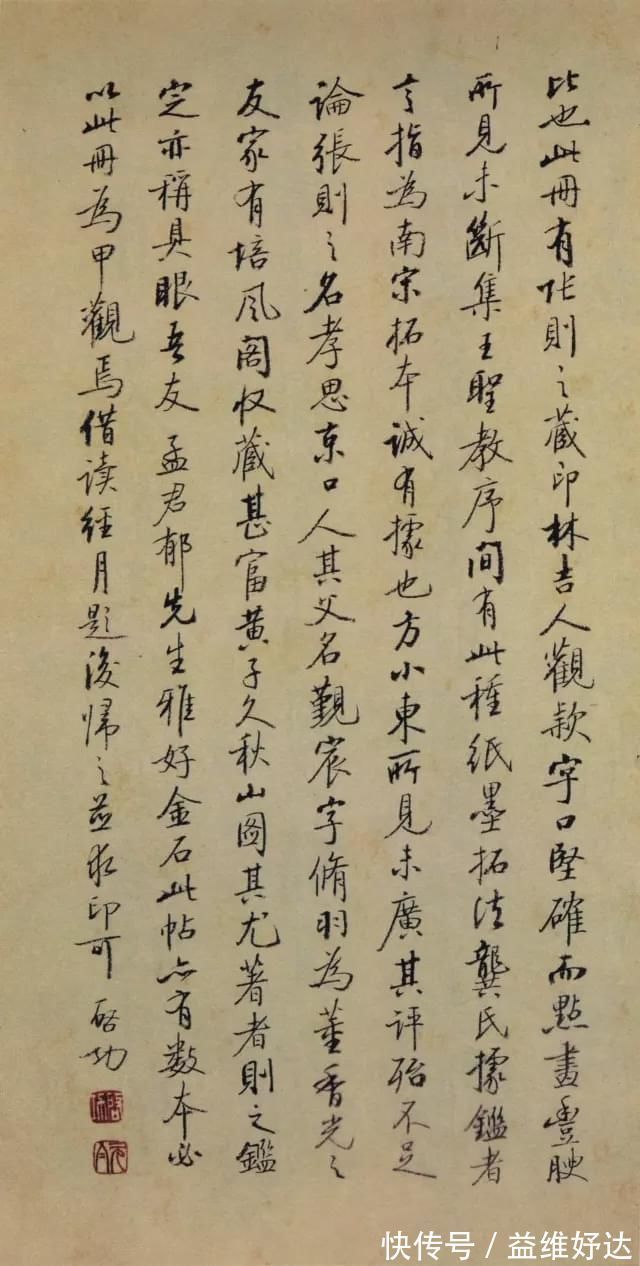 比也此冊有張則之藏印林吉人觀款字口堅確而點畫豐腴
所見未斷集王聖教序間有此種紙墨拓法龔氏據鑑者
言指為南宋拓本誠有據也方小東所見未廣其評殆不足
論張則之名孝思京口人其父名觀宸字脩羽為董香光之
友家有培風閣收藏甚富黃子久秋山圖其尤著者則之鑑
定亦稱具眼吾友孟君郁先生雅好金石此帖亦有数本必
以此冊為甲觀焉借读經月題後歸之並求印可 啓功
快传号／益维妤达